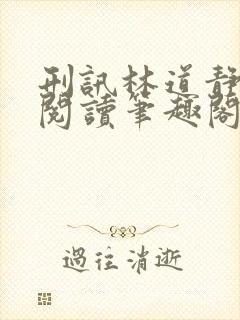 刑訊林道靜
閱讀筆趣閣
過往消逝